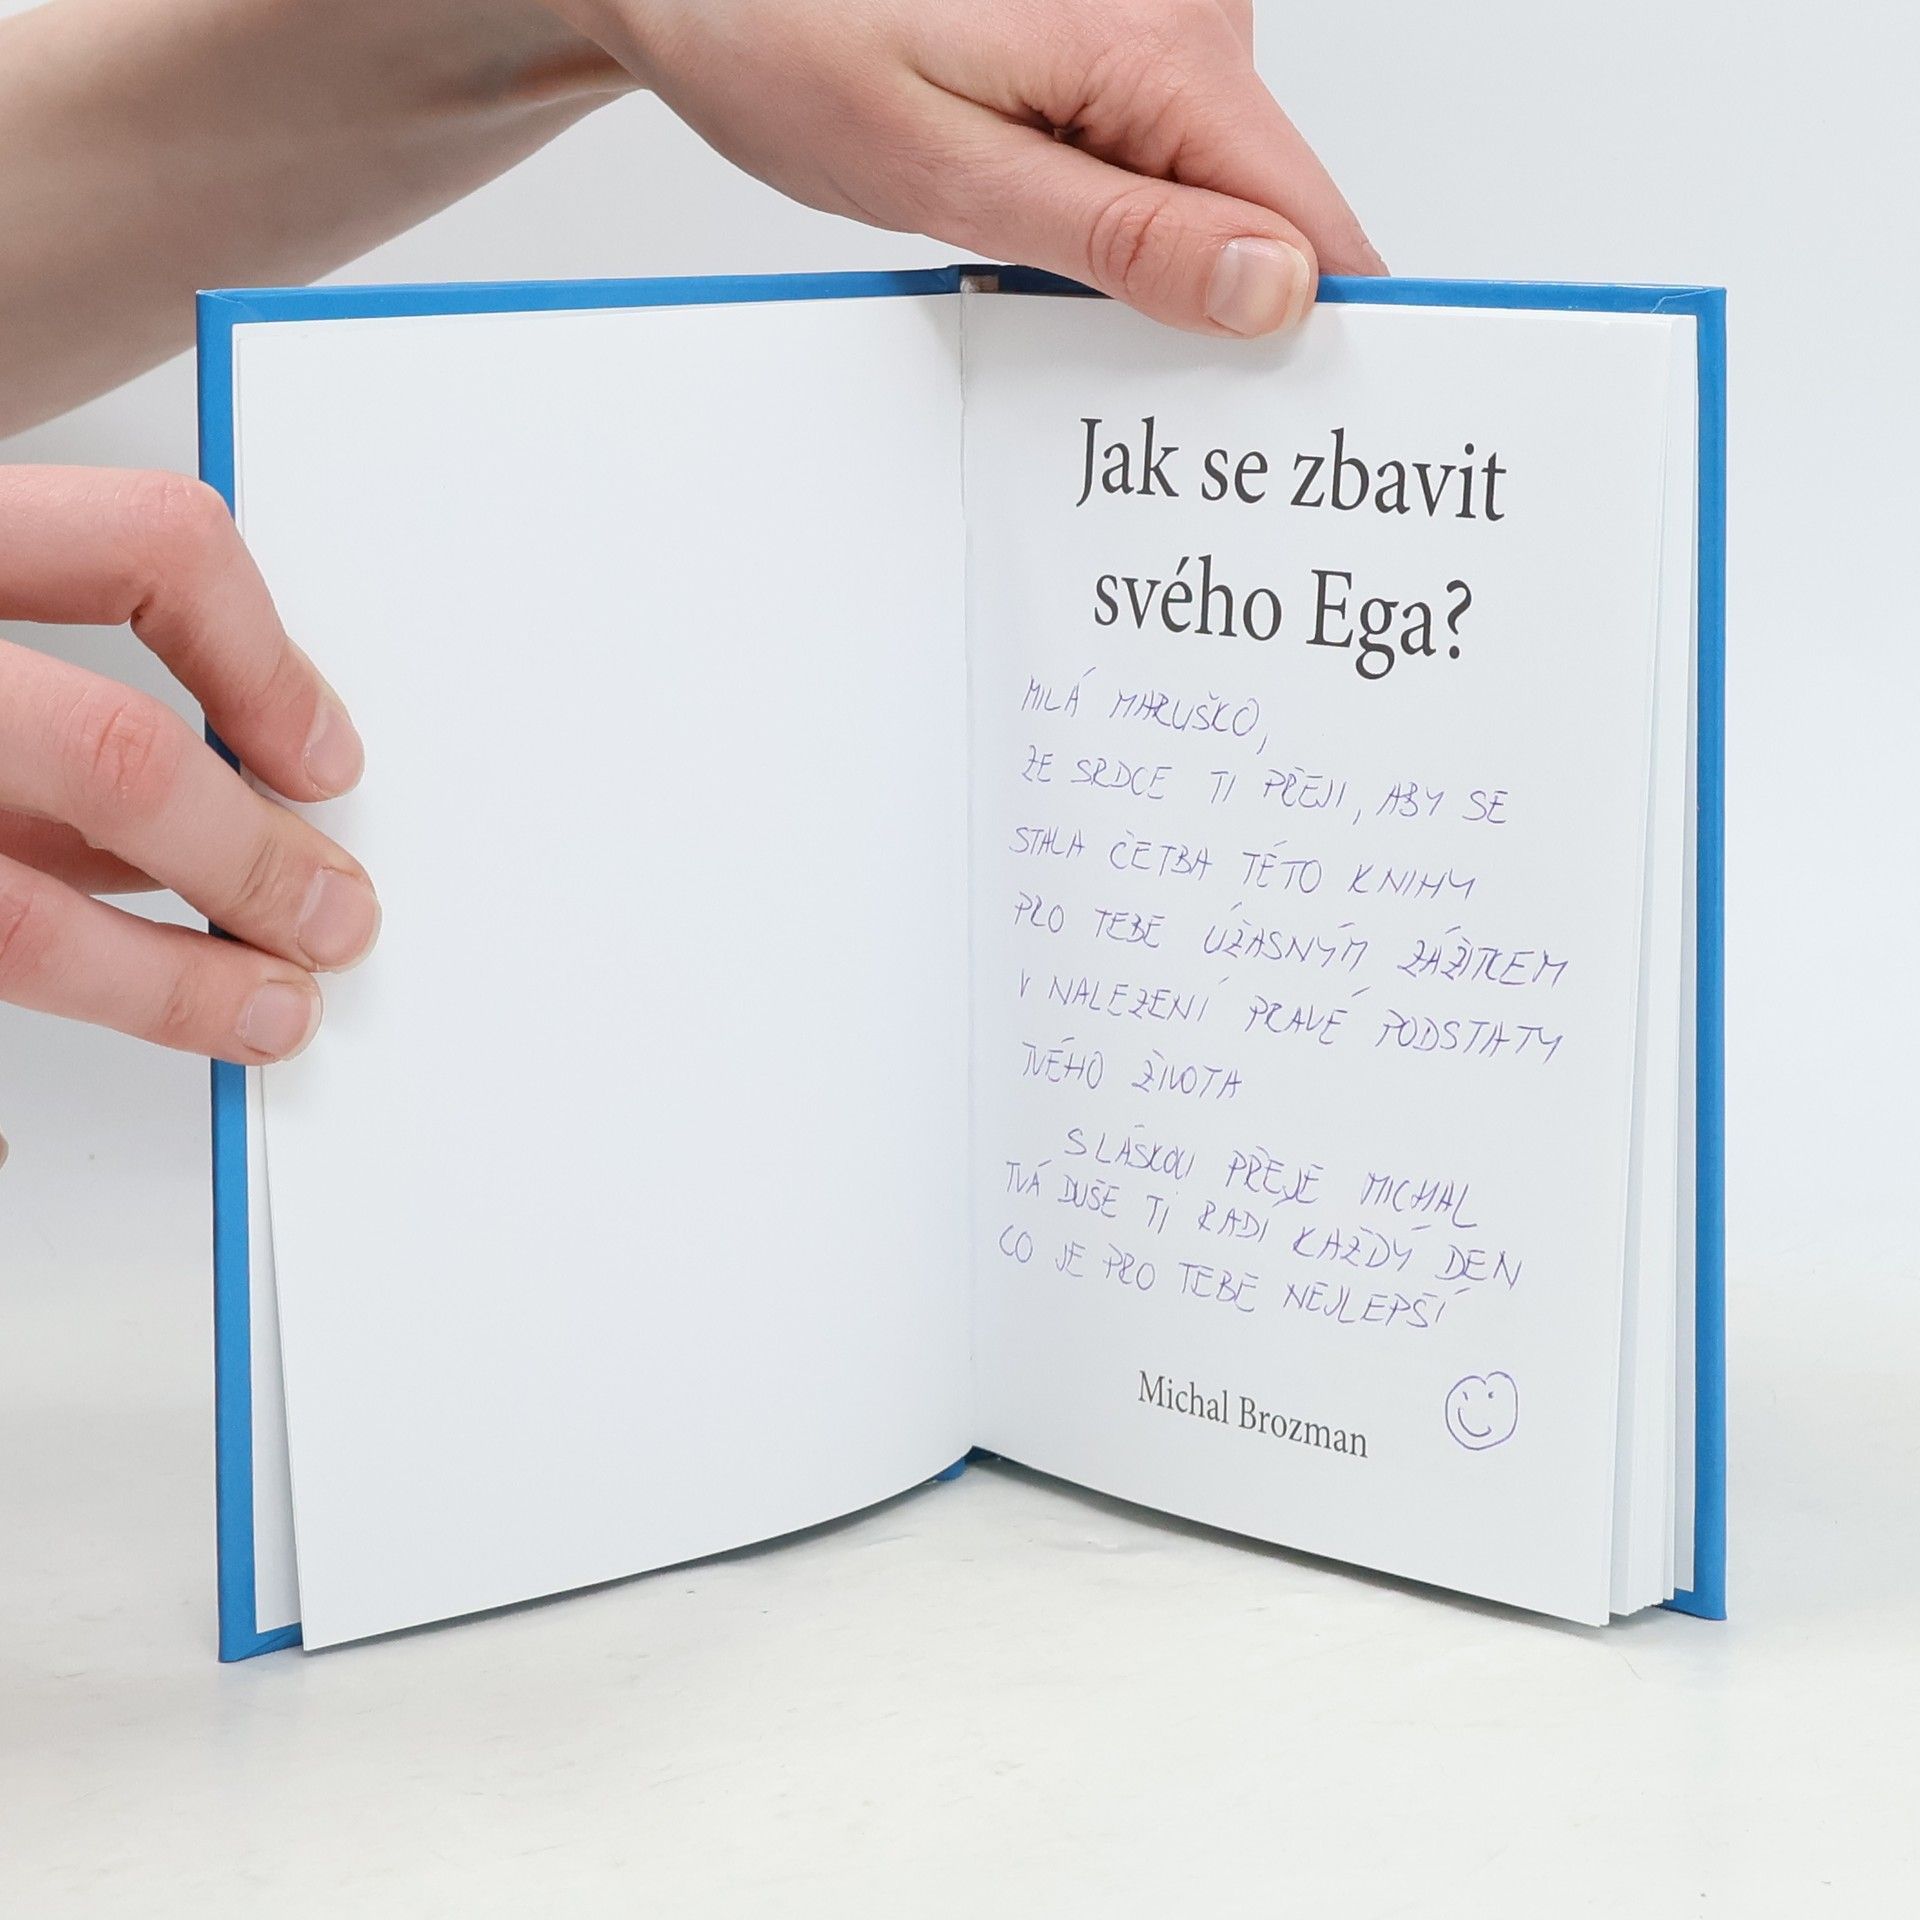 Jak se zbavit
svého Ega?
MILÁ MARUŠKO,
ZE SRDCE TI PŘEJI, ABY SE
STALA ČETBA TÉTO KNIHY
PRO TEBE ÚŽASNÝM ZÁŽITKEM
V NALEZENÍ PRAVÉ PODSTATY
TVÉHO ŽIVOTA
S LÁSKOU PŘEJE MICHAL
TVÁ DUŠE TI RADÍ KAŽDÝ DEN
CO JE PRO TEBE NEJLEPŠÍ
Michal Brozman